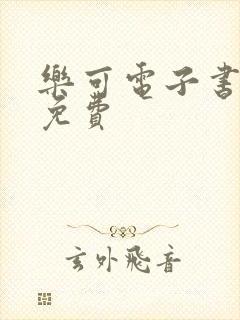 樂可電子書
免費
玄外飛音